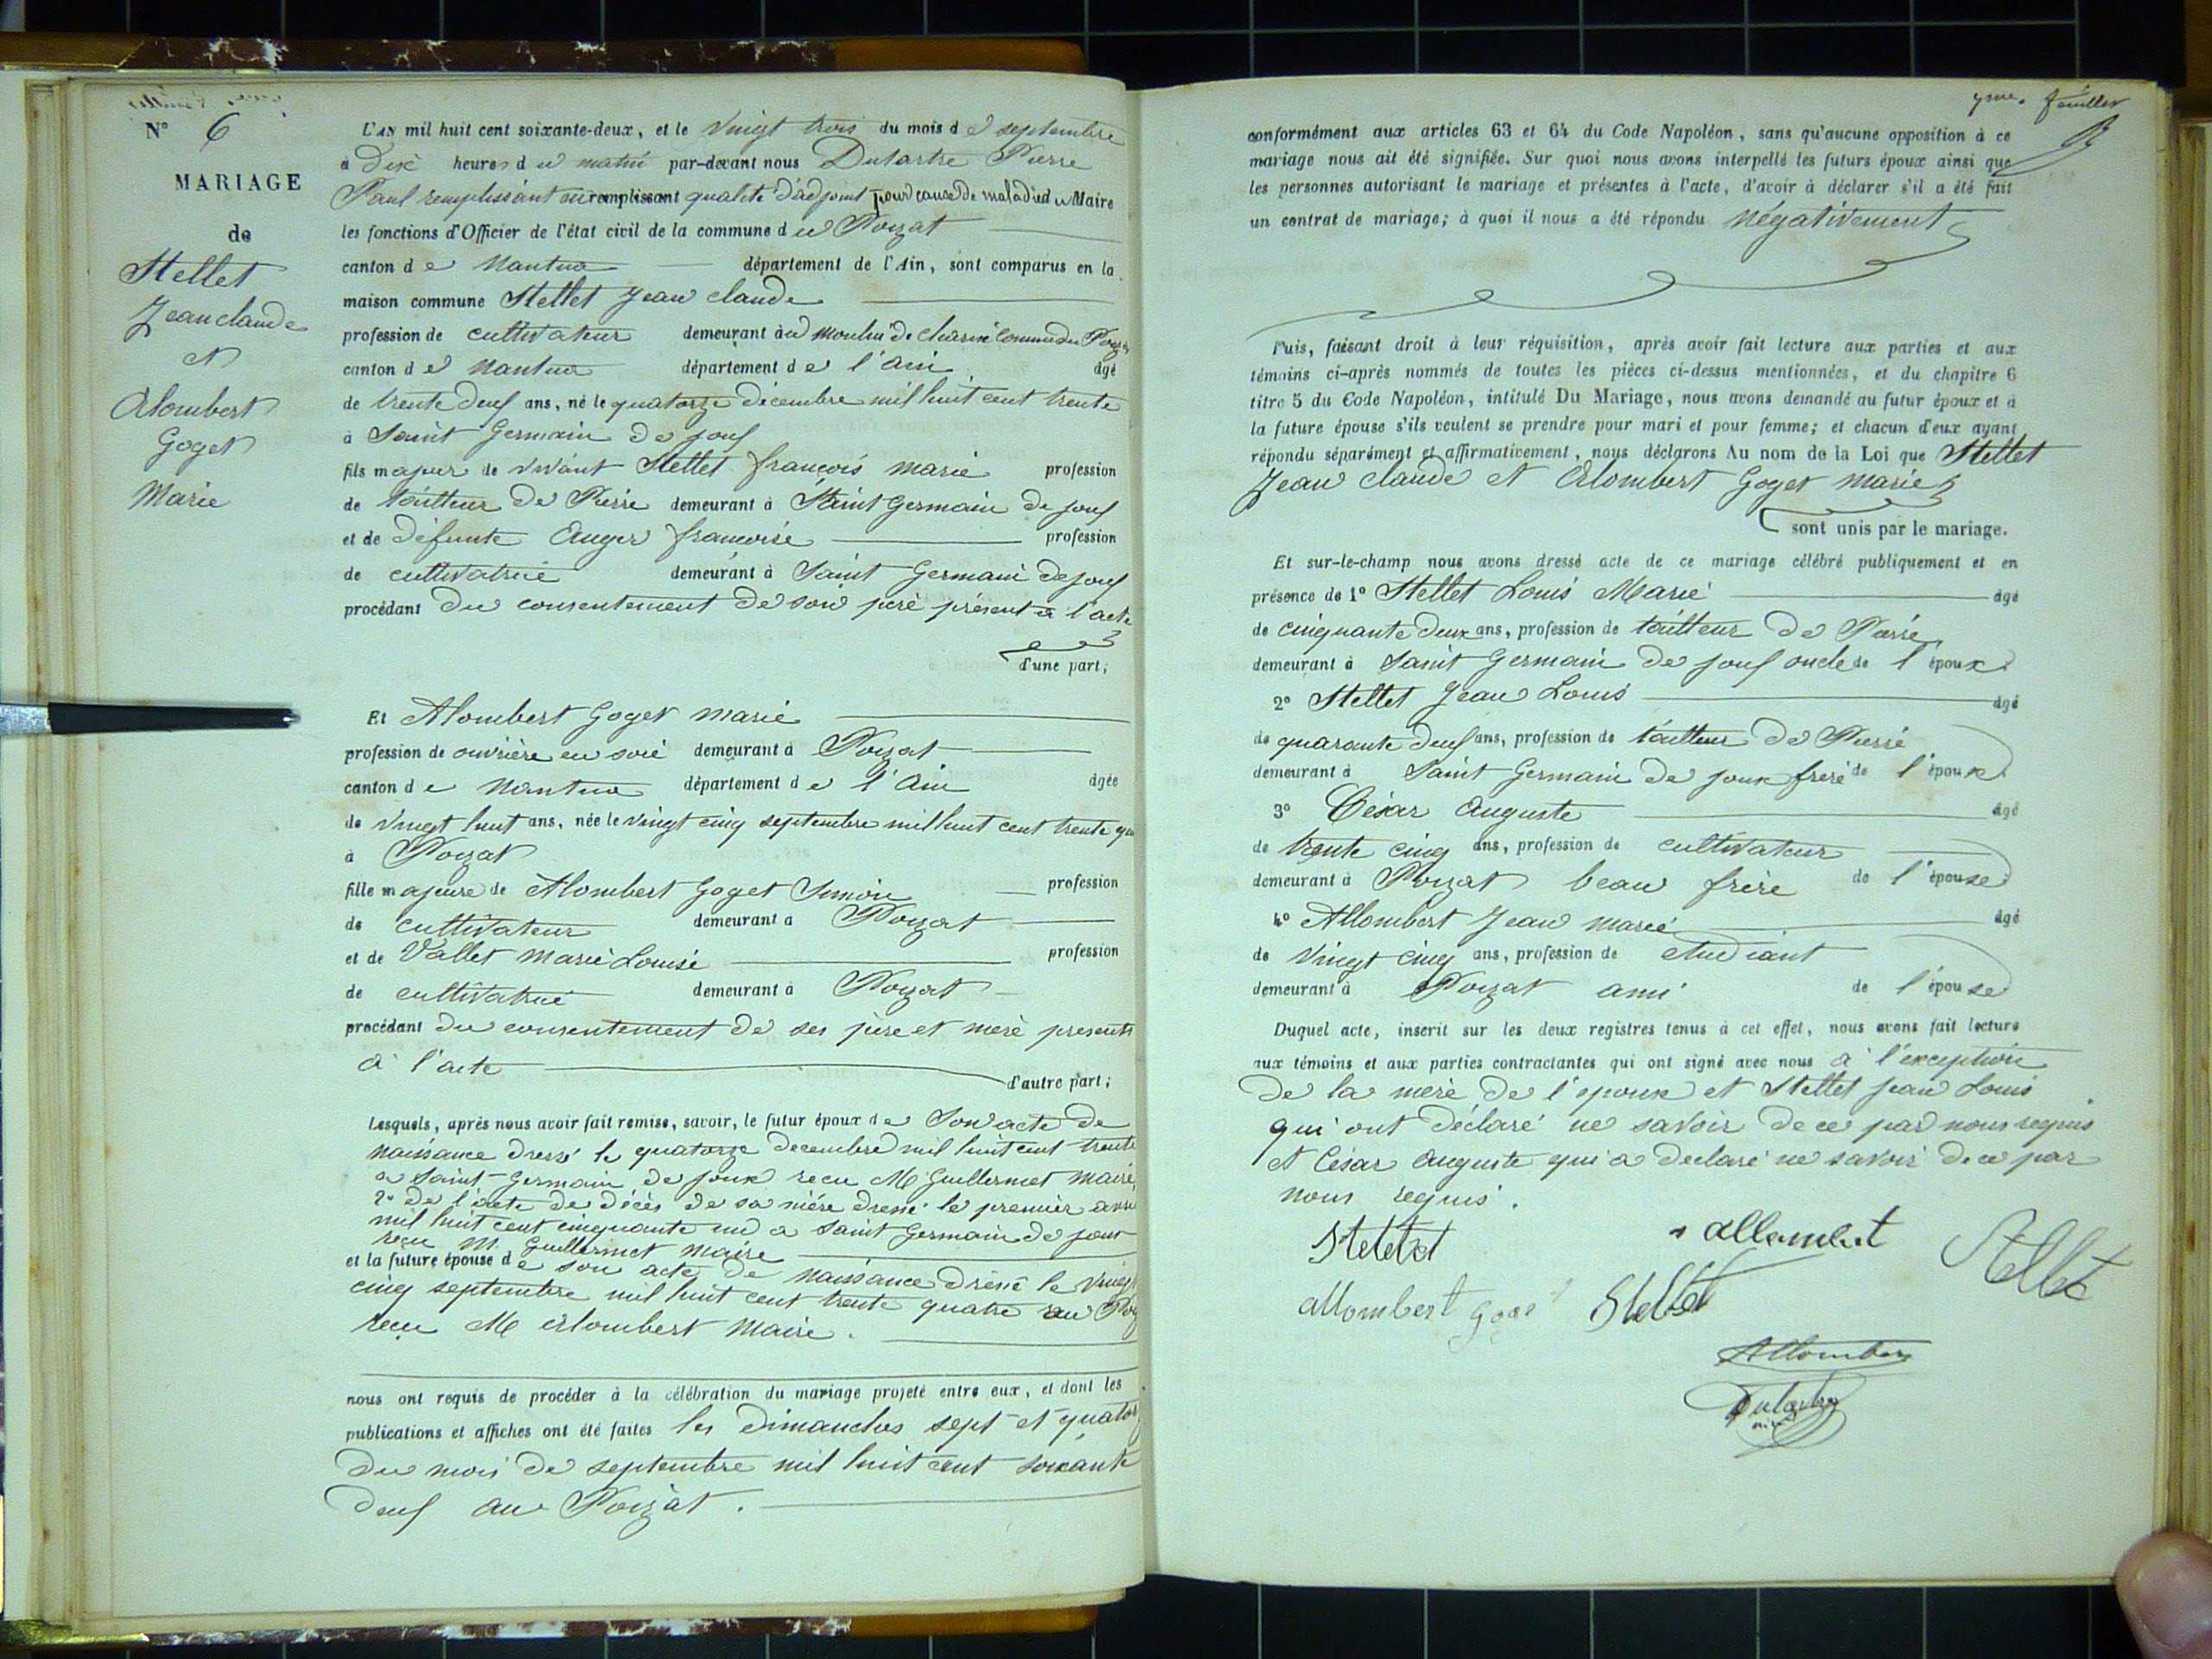 N° 6
MARIAGE
de
Stellet
Jean claude
et
Alombert
Goget
Marie
L'AN mil huit cent soixante-deux, et le vingt trois du mois de septembre
à dix heures du matin par-devant nous Dutartre Pierre
Paul remplissant en remplissant qualité d'adjoint pour cause de maladie du Maire
les fonctions d'Officier de l'état civil de la commune du Poizat
canton de Nantua département de l'Ain, sont comparus en la
maison commune Stellet Jean claude
profession de cultivateur demeurant au moulin de charix commune du Poizat
canton de Nantua département de l'ain âgé
de trente deux ans, né le quatorze décembre mil huit cent trente
à Saint Germain de joux
fils majeur de vivant Stellet françois marie profession
de tailleur de Pierre demeurant à Saint Germain de joux
et de défunte Auger françoise profession
de cultivatrice demeurant à Saint Germain de joux
procédant du consentement de son père présent à l'acte
d'une part;
Et Alombert Goget marie
profession de ouvrière en soie demeurant à Poizat
canton de Nantua département de l'Ain âgée
de vingt huit ans, née le vingt cinq septembre mil huit cent trente qu
à Poizat
fille majeure de Alombert Goget Simon profession
de cultivateur demeurant à Poizat
et de Vallet marie Louise profession
de cultivatrice demeurant à Poizat
procédant du consentement de ses père et mère présents
à l'acte d'autre part;
Lesquels, après nous avoir fait remise, savoir, le futur époux de Son acte de
naissance dressé le quatorze decembre mil huit cent trente
a Saint-Germain de joux recu M Guillermet maire
2° de l'acte de décès de sa mère dressé le premier avril
mil huit cent cinquante un a Saint Germain de joux
reçu M. Guillermet maire
et la future épouse de son acte de naissance dressé le vingt
cinq septembre mil huit cent trente quatre au Poiz
reçu M Alombert Maire.
nous ont requis de procéder à la célébration du mariage projeté entre eux, et dont les
publications et affiches ont été faites les dimanches sept et quator
du mois de septembre mil huit cent soixante
deux au Poizat.
feuillet
conformément aux articles 63 et 64 du Code Napoléon, sans qu'aucune opposition à ce
mariage nous ait été signifiée. Sur quoi nous avons interpellé les futurs époux ainsi que
les personnes autorisant le mariage et présentes à l'acte, d'avoir à déclarer s'il a été fait
un contrat de mariage; à quoi il nous a été répondu négativement
Puis, faisant droit à leur réquisition, après avoir fait lecture aux parties et aux
témoins ci-après nommés de toutes les pièces ci-dessus mentionnées, et du chapitre 6
titre 5 du Code Napoléon, intitulé Du Mariage, nous avons demandé au futur époux et à
la future épouse s'ils veulent se prendre pour mari et pour femme; et chacun d'eux ayant
répondu séparément et affirmativement, nous déclarons Au nom de la Loi que Stellet
Jean claude et Alombert Goget marie
sont unis par le mariage.
Et sur-le-champ nous avons dressé acte de ce mariage célébré publiquement et en
présence de 1° Stellet Louis Marie âgé
de cinquante deux ans, profession de tailleur de Pierre
demeurant à Saint Germain de joux oncle de l'époux
2° Stellet Jean Louis âgé
de quarante deux ans, profession de tailleur de Pierre
demeurant à Saint Germain de joux frere de l'époux
3° César Auguste âgé
de trente cinq ans, profession de cultivateur
demeurant à Poizat beau frère de l'épouse
4° Allombert Jean marie âgé
de vingt cinq ans, profession de étudiant
demeurant à Poizat ami de l'épouse
Duquel acte, inscrit sur les deux registres tenus à cet effet, nous avons fait lecture
aux témoins et aux parties contractantes qui ont signé avec nous à l'exception
de la mère de l'epoux et Stellet jean Louis
qui ont déclaré ne savoir de ce par nous requis
et César Auguste qui a déclaré ne savoir de ce par
nous requis.
allombert Stellet
allombert Stellet
Allombert
Dutartre